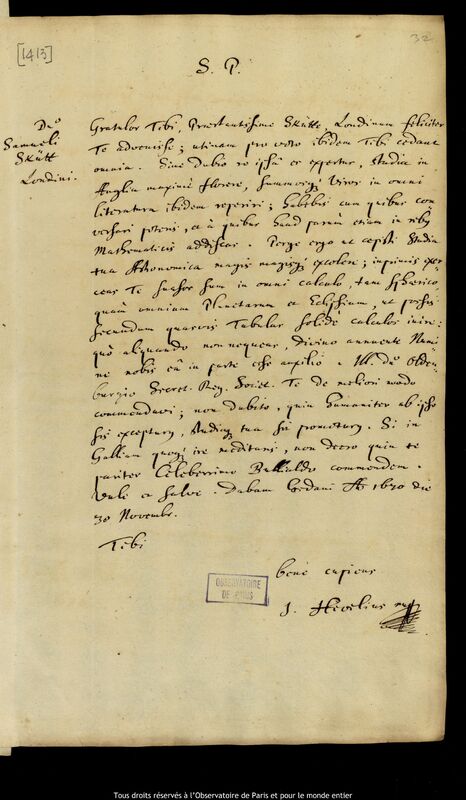 [1413]
32
S. P.
Dno
Samueli
Skütt
Londini.
Gratulor Tibi, Præstantissime Skütte, Londinum feliciter
Te advenisse; utinam pro voto ibidem Tibi cedant
omnia. Sine dubio re ipsâ es expertus, studia in
Angliâ maximè florere, summosq; Viros in omni
literatura ibidem reperiri; habebis cum quibus con
versari poteris, et à quibus haud parùm etiam in rebus
Mathematicis addisces. Perge ergo ut cepisti studia
tua Astronomica magis magisq; excolere; inprimis exer
ceas Te suasor sum in omni calculo, tam sphærico,
quàm omnium Planetarum et Eclipsium, ut possis
secundum quasvis Tabulas solidè calculos inire:
quò aliquando non nequeas, divino annuente Numi
ne nobis eâ in parte esse auxilio. Ill. Dno Olden
burgio Secret. Reg. Societ. Te de meliori modo
commendavi; non dubito, quin humaniter ab ipso
sis exceptus, studiaq; tua sis promoturus. Si in
Galliam quoq; ire meditaris, non deero quin te
pariter Celeberrimo Bullialdo commendem.
Vale et salve. Dabam Gedani Aº 1670 die
30 Novembr.
Tibi
bene cupiens
J. Hevelius mp
OBSERVATOIRE
DE PARIS
Tous droits réservés à l'Observatoire de Paris et pour le monde entier